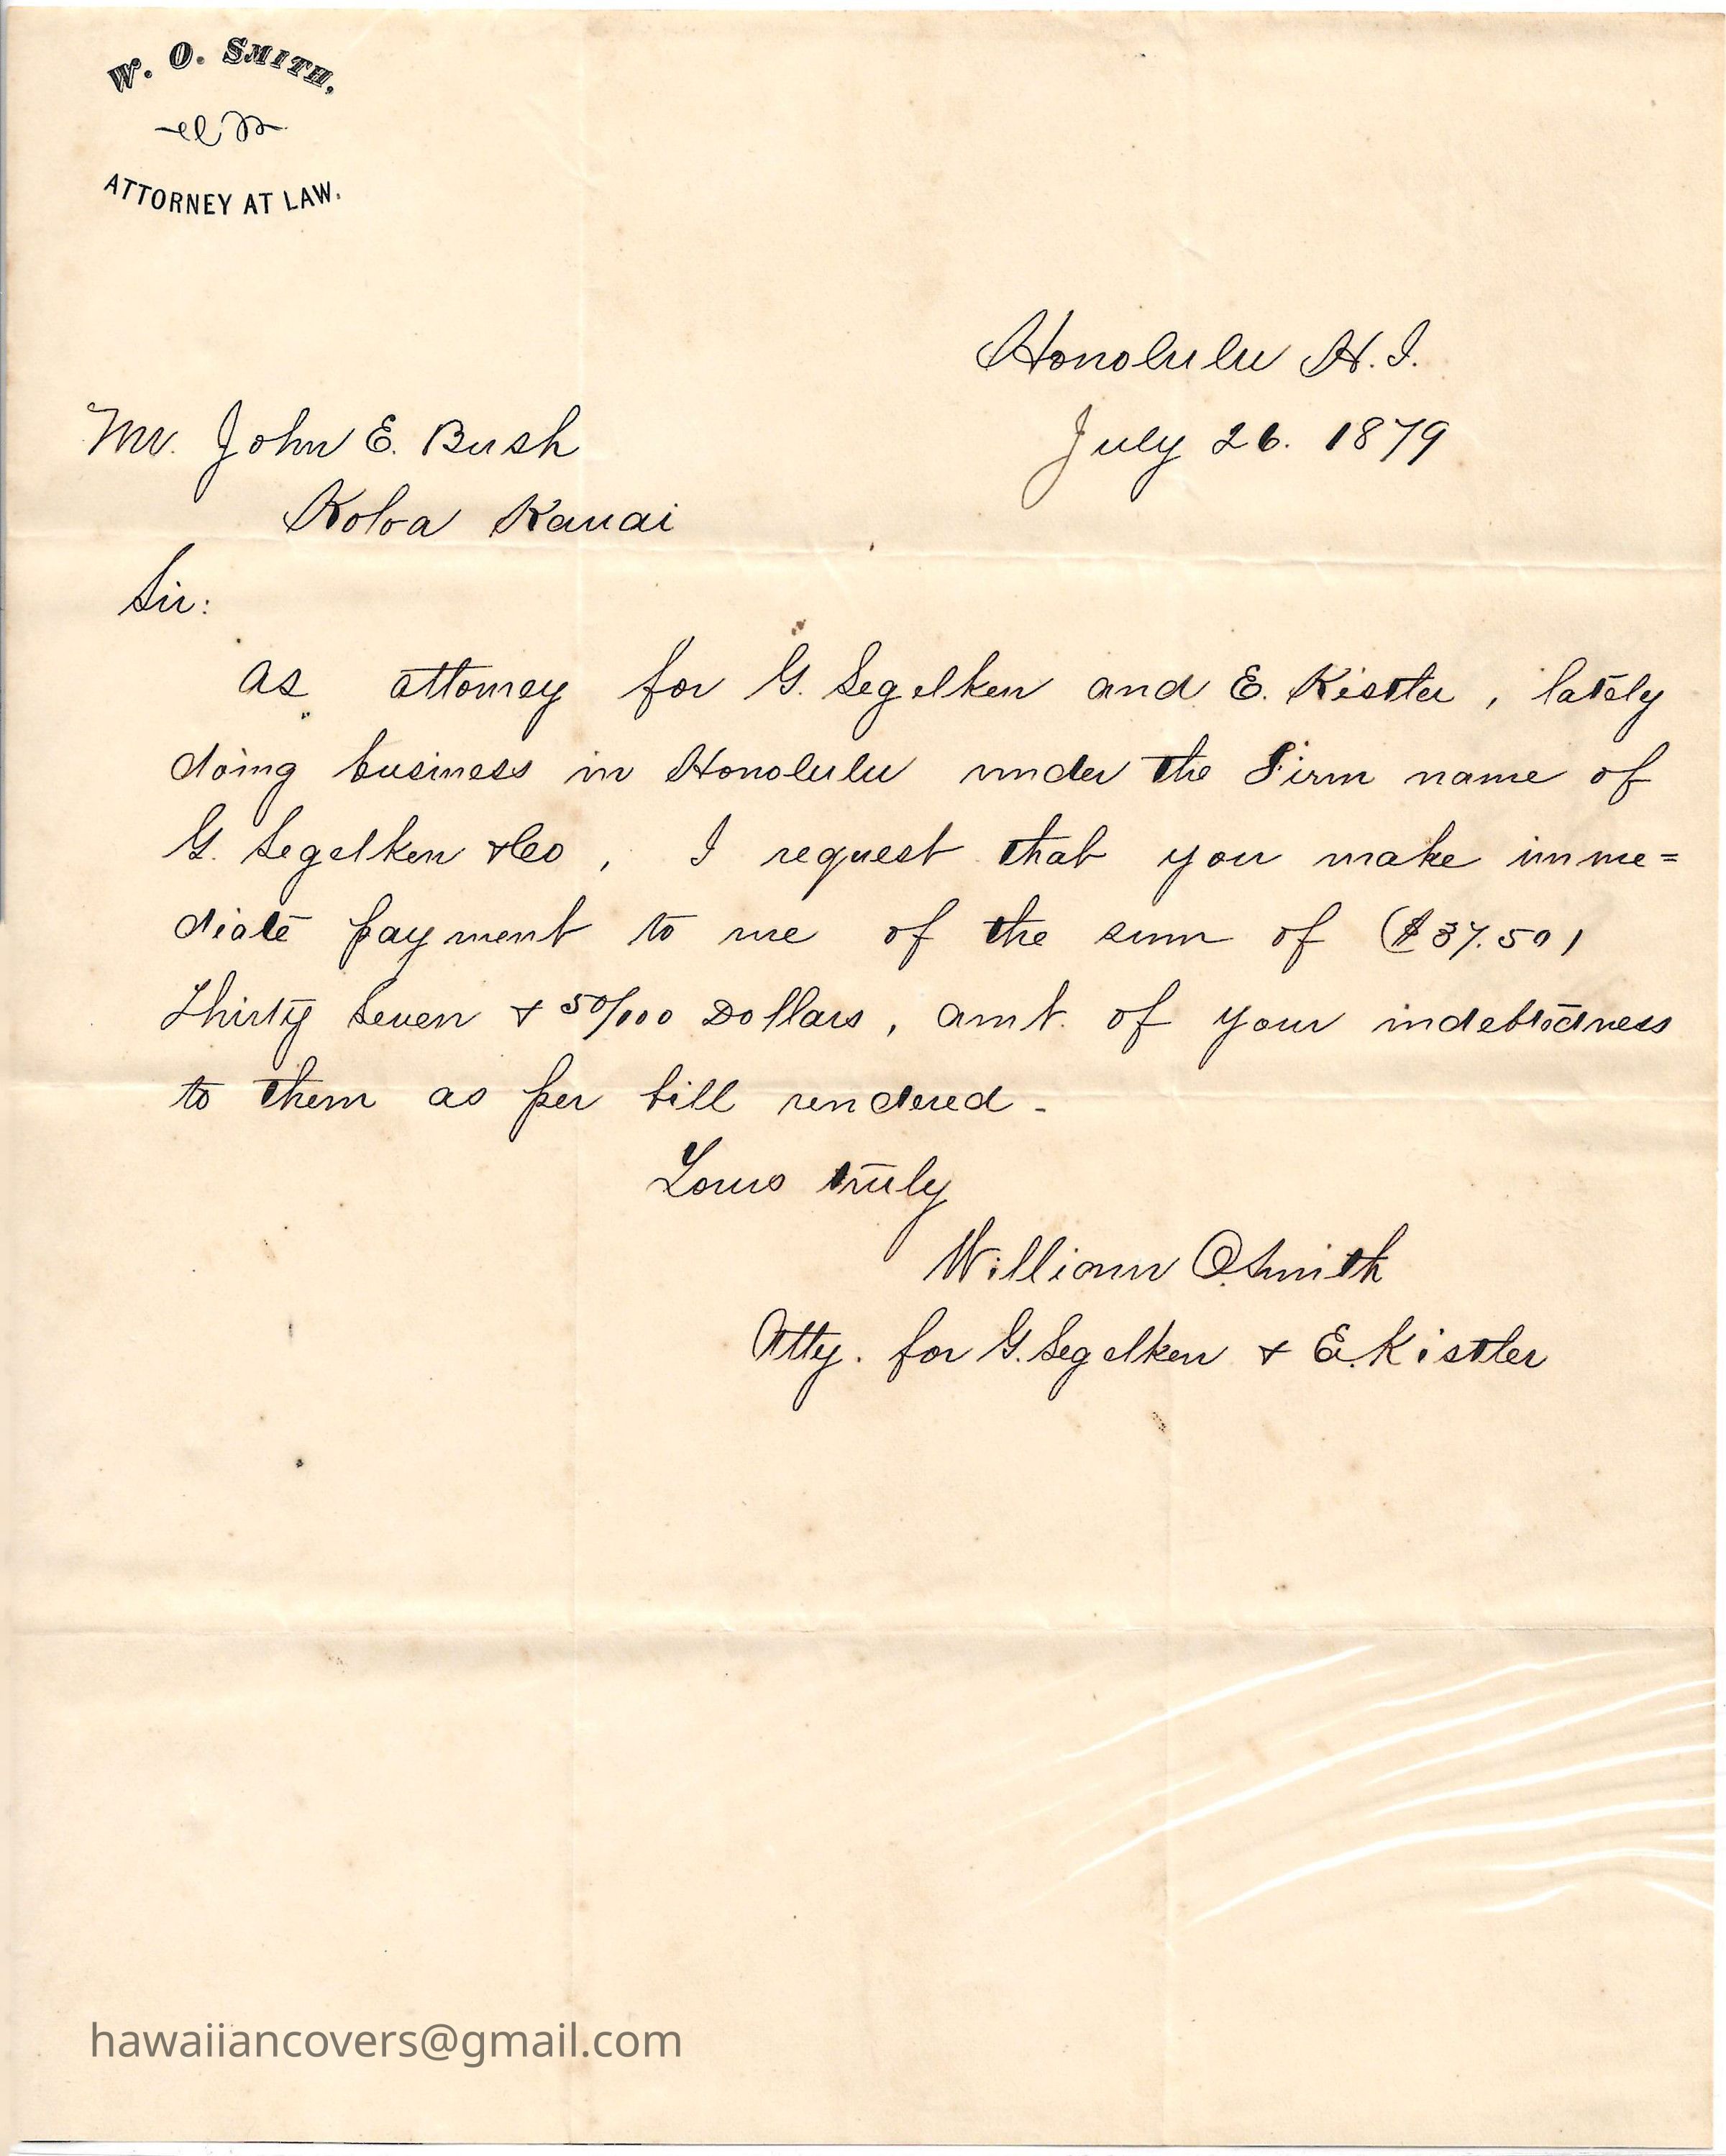 W. O. SMITH,
ATTORNEY AT LAW.
Honolulu H.I.
July 26. 1879
Mr. John E. Bush
Koloa Kauai
Sir:
As attorney for G. Segelken and E. Kistler, lately
doing business in Honolulu under the Firm name of
G. Segelken & Co, I request that you make imme=
diate payment to me of the sum of ($37.50)
Thirty Seven & 50/100 Dollars, amt. of your indebtedness
to them as per bill rendered -
Yours truly
William O. Smith
Atty. for G. Segelken & E. Kistler
hawaiiancovers@gmail.com